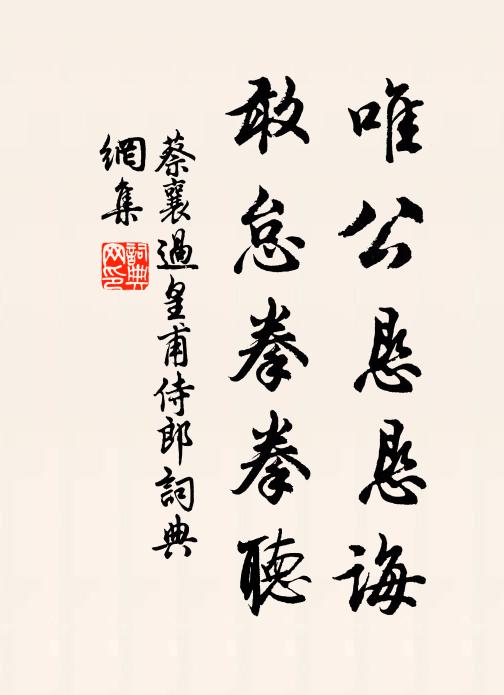 唯公恳恳誨
敢怠拳拳聽
蔡襄過皇甫侍郎詞典
網集
詞典
网印